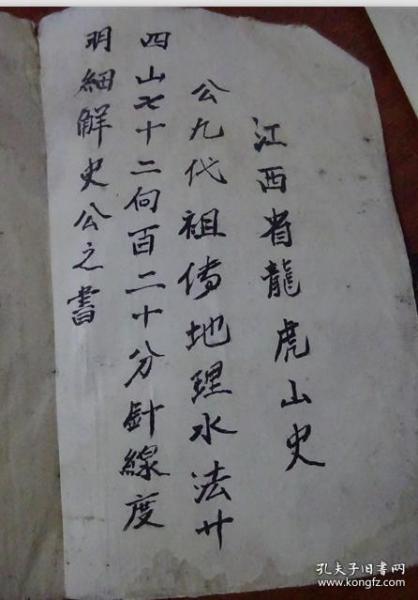 江西省龍虎山史
公九代祖傳地理水法廿
四山七十二向百二十分針線度
明細解史公之書
孔夫子旧书网
www.kongfz.com